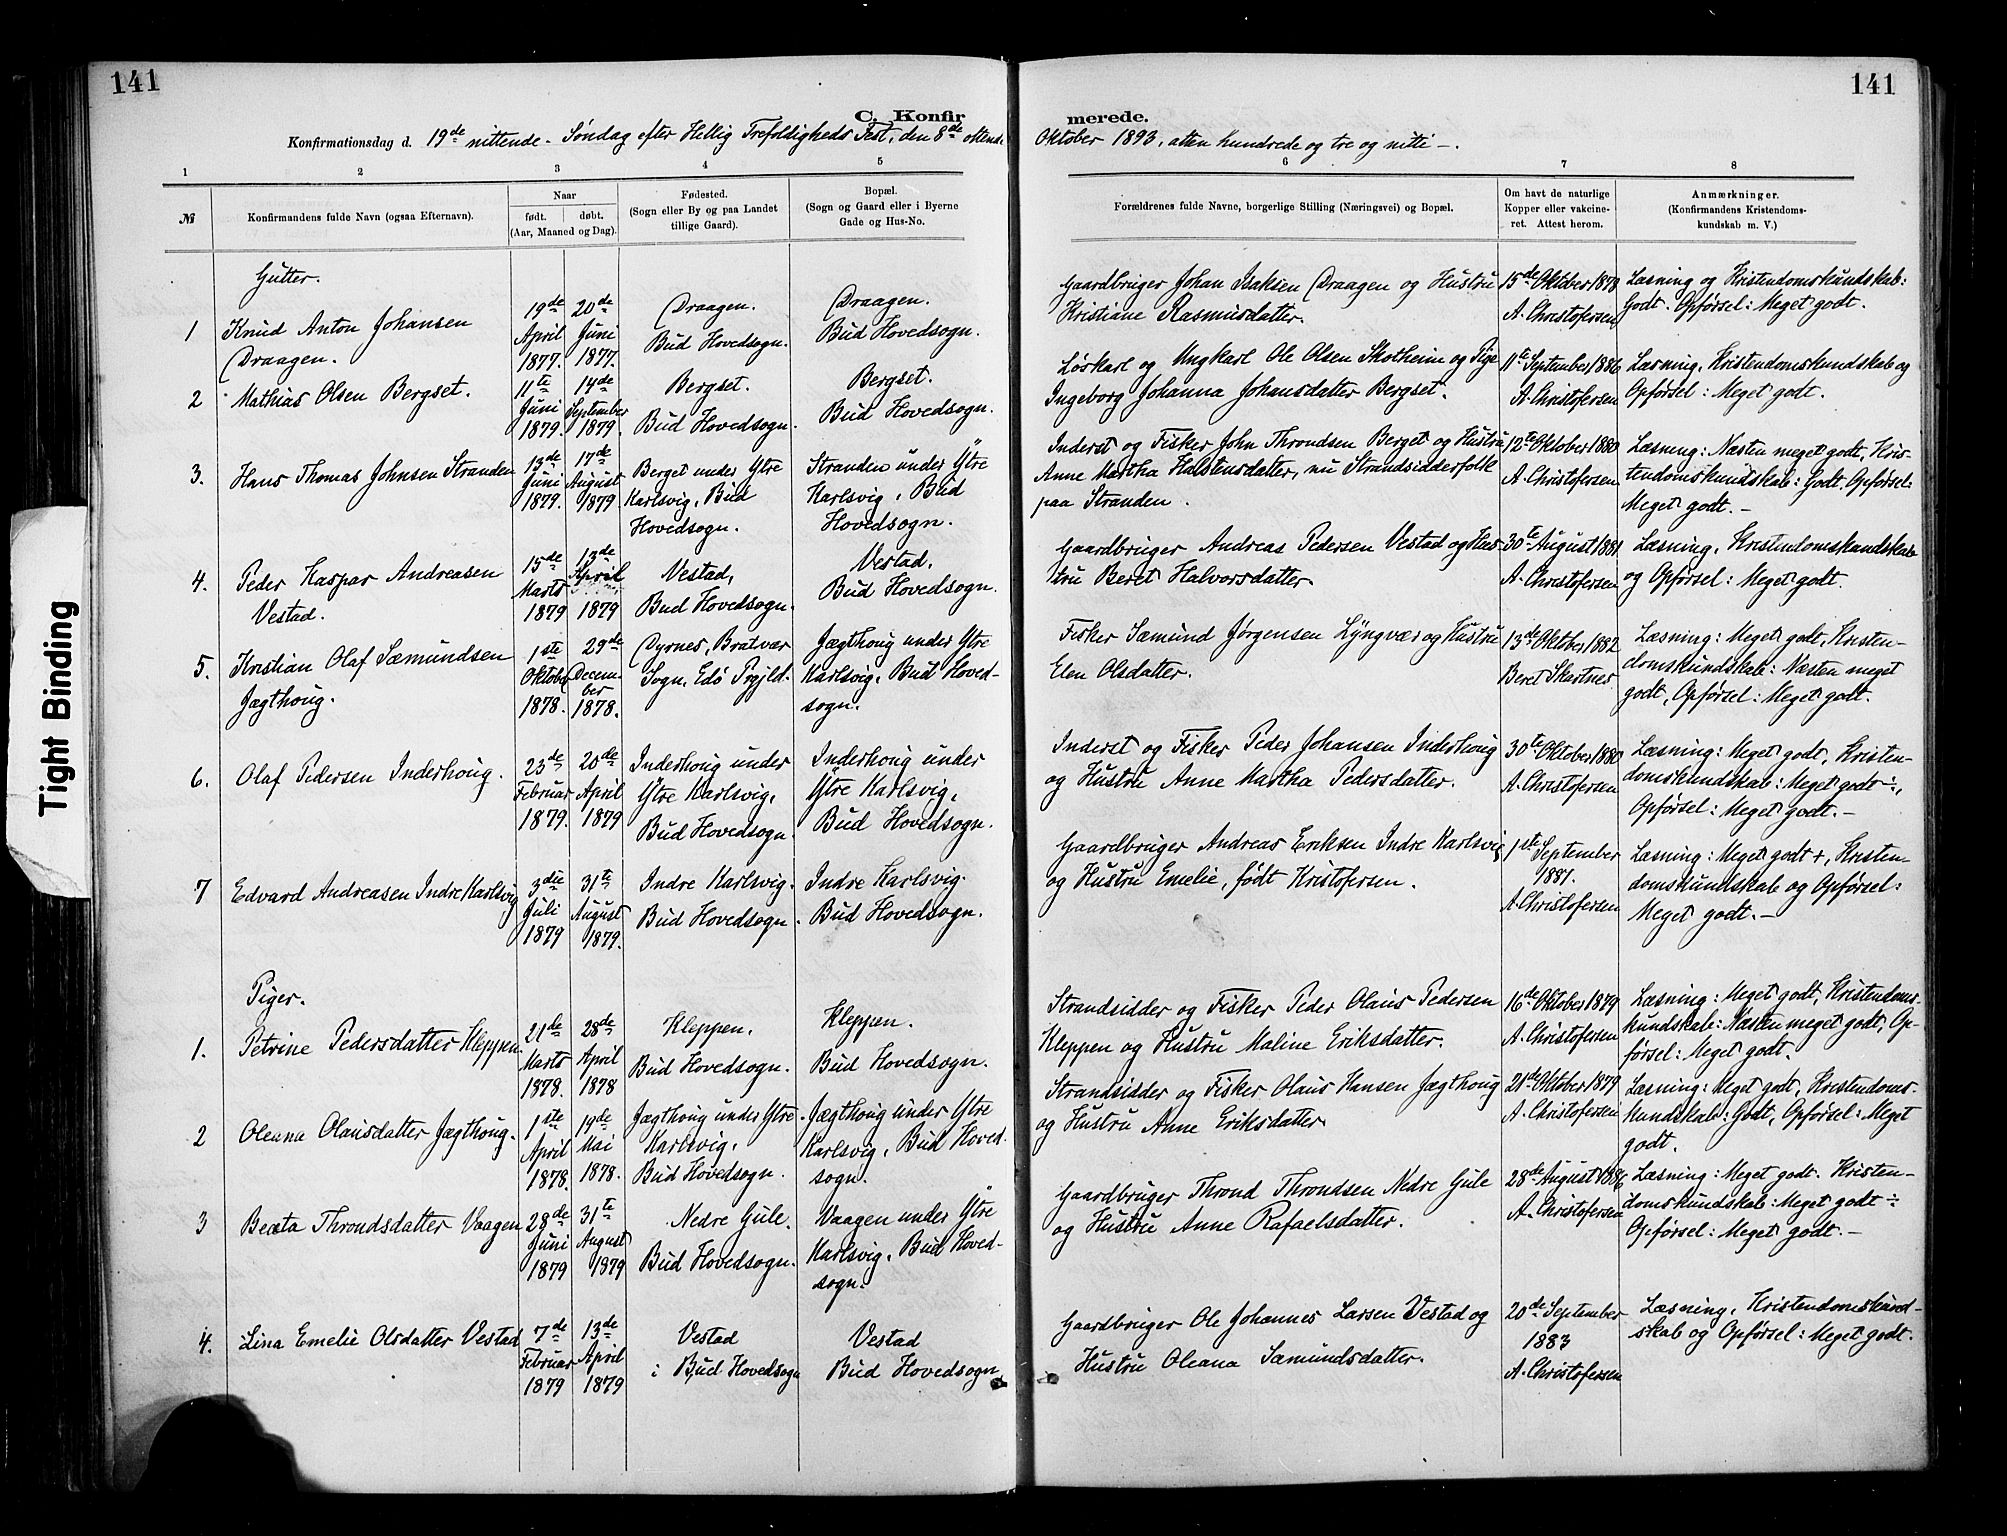 141
141
C. Konfirmerede.
Konfirmationsdag d. 19de nittende - Søndag efter Hellig Trefoldigheds Fest, den 8de ottende Oktober 1893, atten hundrede og tre og nitti -.
1 2 3 4 5 6 7 8
№
Konfirmandens fulde Navn (ogsaa Efternavn).
Naar
født. døbt.
(Aar, Maaned og Dag).
Fødested.
(Sogn eller By og paa Landet
tillige Gaard).
Bopæl.
(Sogn og Gaard eller i Byerne
Gade og Hus-No.
Forældrenes fulde Navne, borgerlige Stilling (Næringsvei) og Bopæl.
Om havt de naturlige
Kopper eller vakcine-
ret. Attest herom.
Anmærkninger.
(Konfirmandens Kristendoms-
kundskab m. V.)
Gutter.
1
Knud Anton Johansen
Draagen.
19de
April
1877.
20de
Juni
1877.
Draagen.
Bud Hovedsogn.
Draagen.
Bud Hovedsogn.
Gaardbruger Johan Isaksen Draagen og Hustru
Kristiane Rasmusdatter.
15de Oktober 1878
A. Christofersen
Læsning og Kristendomskundskab:
Godt. Opførsel: Meget godt.
2
Mathias Olsen Bergset.
11te
Juni
1879.
14de
September
1879.
Bergset.
Bud Hovedsogn.
Bergset.
Bud Hovedsogn.
Løskarl og Ungkarl Ole Olsen Skotheim og Pige
Ingeborg Johanna Johansdatter Bergset.
11te September 1886
A. Christofersen
Læsning, Kristendomskundskab og
Opførsel: Meget godt.
3.
Hans Thomas Johnsen Stranden
13de
Juni
1879.
17de
August
1879
Berget under Ytre
Karlsvig, Bud
Hovedsogn.
Stranden under Ytre
Karlsvig, Bud
Hovedsogn.
Inderst og Fisker John Throndsen Berget og Hustru
Anne Martha Halstensdatter, nu Strandsidderfolk
paa Stranden.
12te Oktober 1880
A. Christofersen
Læsning: Næsten meget godt, Kris-
tendomskundskab: Godt. Opførsel:
Meget godt. -
4.
Peder Kaspar Andreasen
Vestad.
15de
Marts
1879
13de
April
1879
Vestad,
Bud Hovedsogn.
Vestad,
Bud Hovedsogn.
Gaardbruger Andreas Pedersen Vestad og Hus
tru Beret Halvorsdatter.
30te August 1881.
A. Christofersen
Læsning, Kristendomskundskab
og Opførsel: Meget godt.
5.
Kristian Olaf Sæmundsen
Jægthoug.
1ste
Oktober
1878.
29de
Decem-
ber
1878.
Dyrnes, Bratvær
Sogn, Edø Prgjld.
Jægthoug under Ytre
Karlsvig, Bud Hoved-
sogn.
Fisker Sæmund Jørgensen Lyngvær og Hustru
Elen Olsdatter.
13de Oktber 1882
Beret Skartnes
Læsning: Meget godt, Kristen-
domskundskab: Næsten meget
godt, Opførsel: Meget godt.
6.
Olaf Pedersen Inderhoug.
23de
Februar
1879.
20de
April
1879
Inderhoug under
Ytre Karlsvig,
Bud Hovedsogn.
Inderhoug under
Ytre Karlsvig,
Bud Hovedsogn.
Inderst og Fisker Peder Johansen Inderhoug
og Hustru Anne Martha Pedersdatter.
30te Oktober 1880
A. Christofersen
Læsning: Meget godt, Kristen-
domskundskab: Meget godt ÷,
Opførsel: Meget godt. -
7
Edvard Andreasen Indre Karlsvig
3die
Juli
1879
31te
August
1879.
Indre Karlsvig.
Bud Hovedsogn.
Indre Karlsvig.
Bud Hovedsogn.
Gaardbruger Andreas Eriksen Indre Karlsvig
og Hustru Emelie, født Kristofersen.
1ste September
1881.
A. Christofersen
Læsning: Meget godt +, Kristen-
domskundskab og Opførsel:
Meget godt. -
Piger.
1.
Petrine Pedersdatter Kleppen.
21de
Marts
1878.
28de
April
1878
Kleppen.
Bud Hovedsogn.
Kleppen.
Bud Hovedsogn.
Strandsidder og Fisker Peder Olaus Pedersen
Kleppen og Hustru Maline Eriksdatter.
16de Oktober 1879
A. Christofersen
Læsning: Meget godt, Kristendoms-
kundskab: Næsten meget godt, Op-
førsel: Meget godt.
2
Oleana Olausdatter Jægthoug.
1ste
April
1878.
19de
Mai
1878.
Jægthoug under Ytre
Karlsvig,
Bud Hovedsogn.
Jægthoug under Ytre
Karlsvig, Bud Hoved-
sogn.
Strandsidder og Fisker Olaus Hansen Jægthoug
og Hustru Anne Eriksdatter
21de Oktober 1879
A. Christofersen
Læsning: Meget godt, Kristendoms-
kundskab: Godt, Opførsel: Meget
godt.
3
Beata Throndsdatter Vaagen
28de
Juni
1879
31te
August
1879
Nedre Gule.
Bud Hovedsogn.
Vaagen under Ytre
Karlsvig, Bud Hoved-
sogn.
Gaardbruger Thrond Throndsen Nedre Gule
og Hustru Anne Rafaelsdatter.
28de August 1886
A. Christofersen
Læsning: Meget godt. Kristen-
domskundskab: Meget godt ÷
Opførsel: Meget godt. -
4.
Lina Emelie Olsdatter Vestad
7de
Februar
1879
13de
April
1879
Vestad
i Bud Hovedsogn
Vestad
Bud Hovedsogn
Gaardbruger Ole Johannes Larsen Vestad og
Hustru Oleana Sæmundsdatter.
20de September
1883
A. Christofersen
Læsning, Kristendomskund-
skab og Opførsel: Meget godt.
Tight Binding